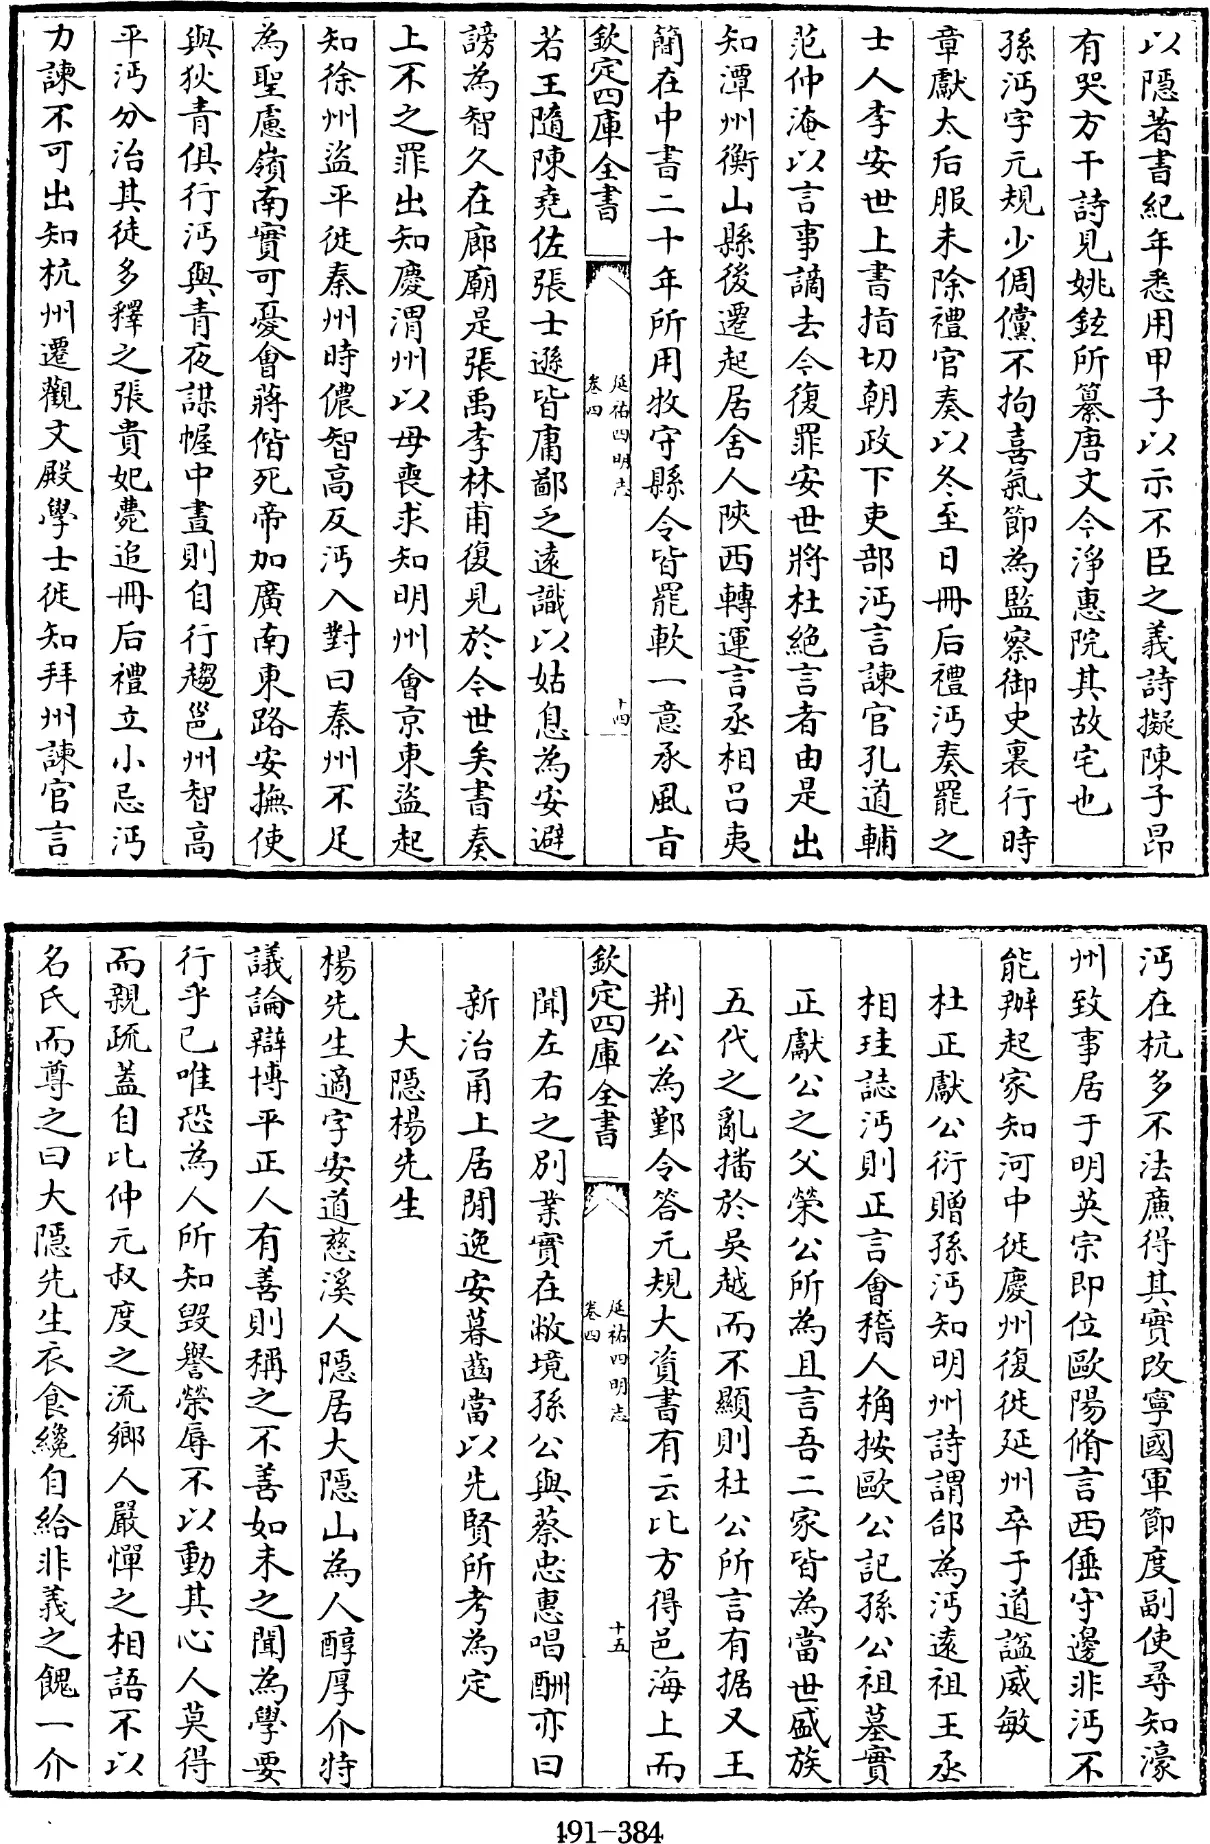 以隱著書紀年悉用甲子以示不臣之義詩擬陳子昂
有哭方干詩見姚鉉所纂唐文今淨惠院其故宅也
孫沔字元規少倜儻不拘喜氣節為監察御史裏行時
章獻太后服未除禮官奏以冬至日冊后禮沔奏罷之
士人李安世上書指切朝政下吏部沔言諫官孔道輔
范仲淹以言事謫去今復罪安世將杜絶言者由是出
知潭州衡山縣後遷起居舍人陝西轉運言丞相呂夷
簡在中書二十年所用牧守縣令皆罷軟一意承風旨
欽定四庫全書
延祐四明志
卷四
十四
若王隨陳堯佐張士遜皆庸鄙乏遠識以姑息為安避
謗為智久在廊廟是張禹李林甫復見於今世矣書奏
上不之罪出知慶渭州以母喪求知明州會京東盜起
知徐州盜平徙秦州時儂智高反沔入對曰秦州不足
為聖慮嶺南實可憂會蔣偕死帝加廣南東路安撫使
與狄青俱行沔與青夜謀幄中晝則自行趨邕州智高
平沔分治其徒多釋之張貴妃薨追冊后禮立小忌沔
力諫不可出知杭州遷觀文殿學士徙知拜州諫官言
沔在杭多不法廉得其實改寧國軍節度副使尋知濠
州致事居于明英宗即位歐陽脩言西倕守邊非沔不
能辦起家知河中徙慶州復徙延州卒于道諡威敏
杜正獻公衍贈孫沔知明州詩謂郃為沔遠祖王丞
相珪誌沔則正言會稽人桷按歐公記孫公祖墓實
正獻公之父榮公所為且言吾二家皆為當世盛族
五代之亂播於吳越而不顯則杜公所言有据又王
荆公為鄞令答元規大資書有云比方得邑海上而
欽定四庫全書
延祐四明志
卷四
十五
聞左右之別業實在敝境孫公與蔡忠惠唱酬亦曰
新治甬上居閒逸安暮齒當以先賢所考為定
大隱楊先生
楊先生適字安道慈溪人隱居大隱山為人醇厚介特
議論辯博平正人有善則稱之不善如未之聞為學要
行乎已唯恐為人所知毀譽榮辱不以動其心人莫得
而親疏蓋自比仲元叔度之流鄉人嚴憚之相語不以
名氏而尊之曰大隱先生衣食纔自給非義之餽一介
491-384